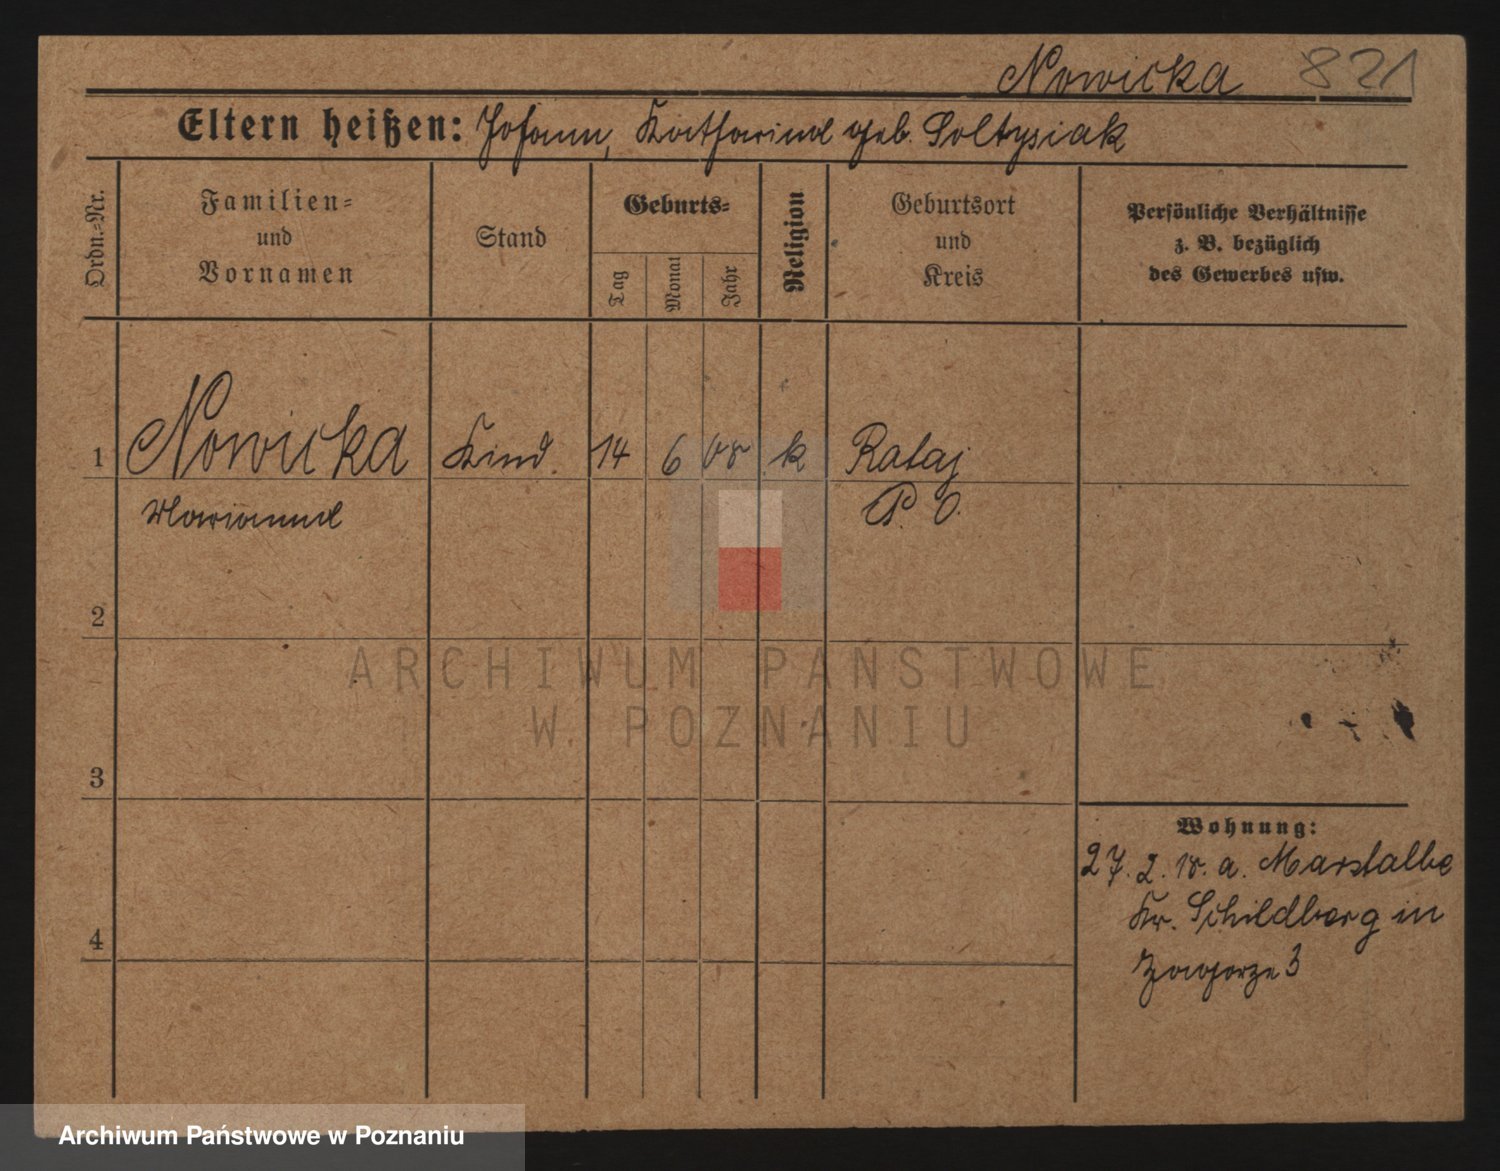 Nowicka 821
Eltern heißen: Johann, Katharina geb. Soltysiak
Ordn.-Nr.
Familien-
und
Vornamen
Stand
Geburts-
Tag
Monat
Jahr
Religion
Geburtsort
und
Kreis
Persönliche Verhältnisse
z. B. bezüglich
des Gewerbes usw.
1 Nowicka Kind. 14 6 08 k Rataj
Marianna P. O.
2
ARCHIWUM PAŃSTWOWE
W POZNANIU
3
Wohnung:
27. 2. 18. a. Marstalbe
Kr. Schildberg in
4
Zagorze 3
Archiwum Państwowe w Poznaniu